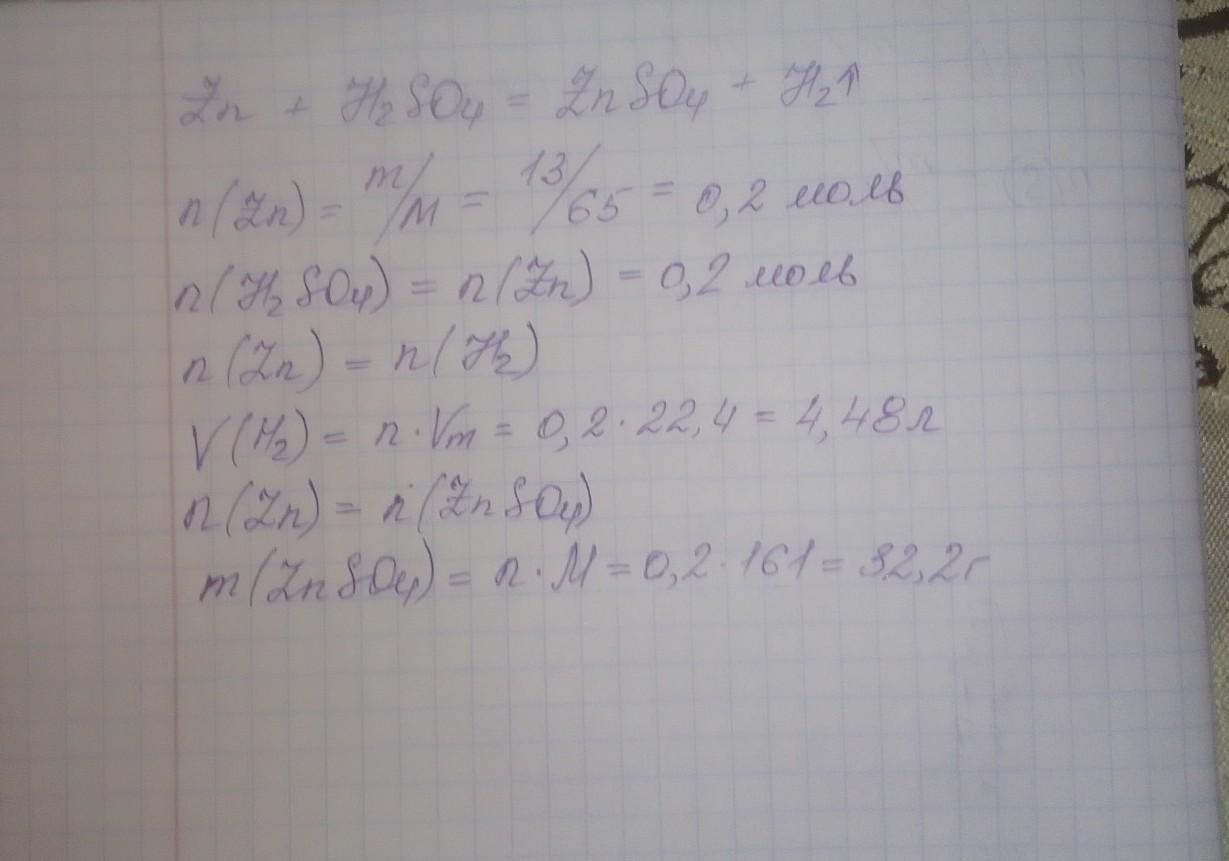 Zn + H₂SO₄ = ZnSO₄ + H₂↑
n(Zn) = m/M = 13/65 = 0,2 моль
n(H₂SO₄) = n(Zn) = 0,2 моль
n(Zn) = n(H₂)
V(H₂) = n·Vm = 0,2·22,4 = 4,48л
n(Zn) = n(ZnSO₄)
m(ZnSO₄) = n·M = 0,2·161 = 32,2г